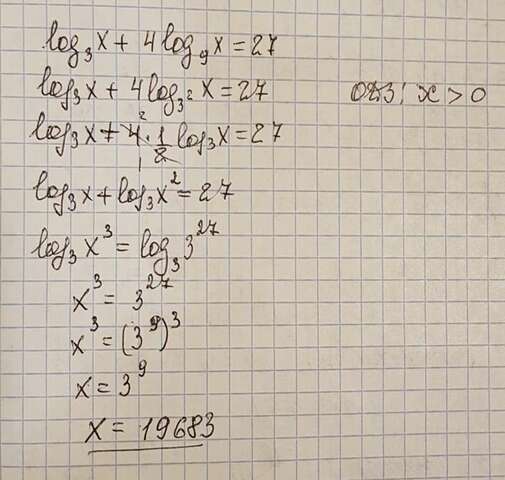 log₃x + 4log₉x = 27
log₃x + 4log₃²x = 27 ОДЗ: x > 0
log₃x + 4² · 1/2 log₃x = 27
1
log₃x + log₃x² = 27
log₃x³ = log₃3²⁷
x³ = 3²⁷
x³ = (3⁹)³
x = 3⁹
x = 19683